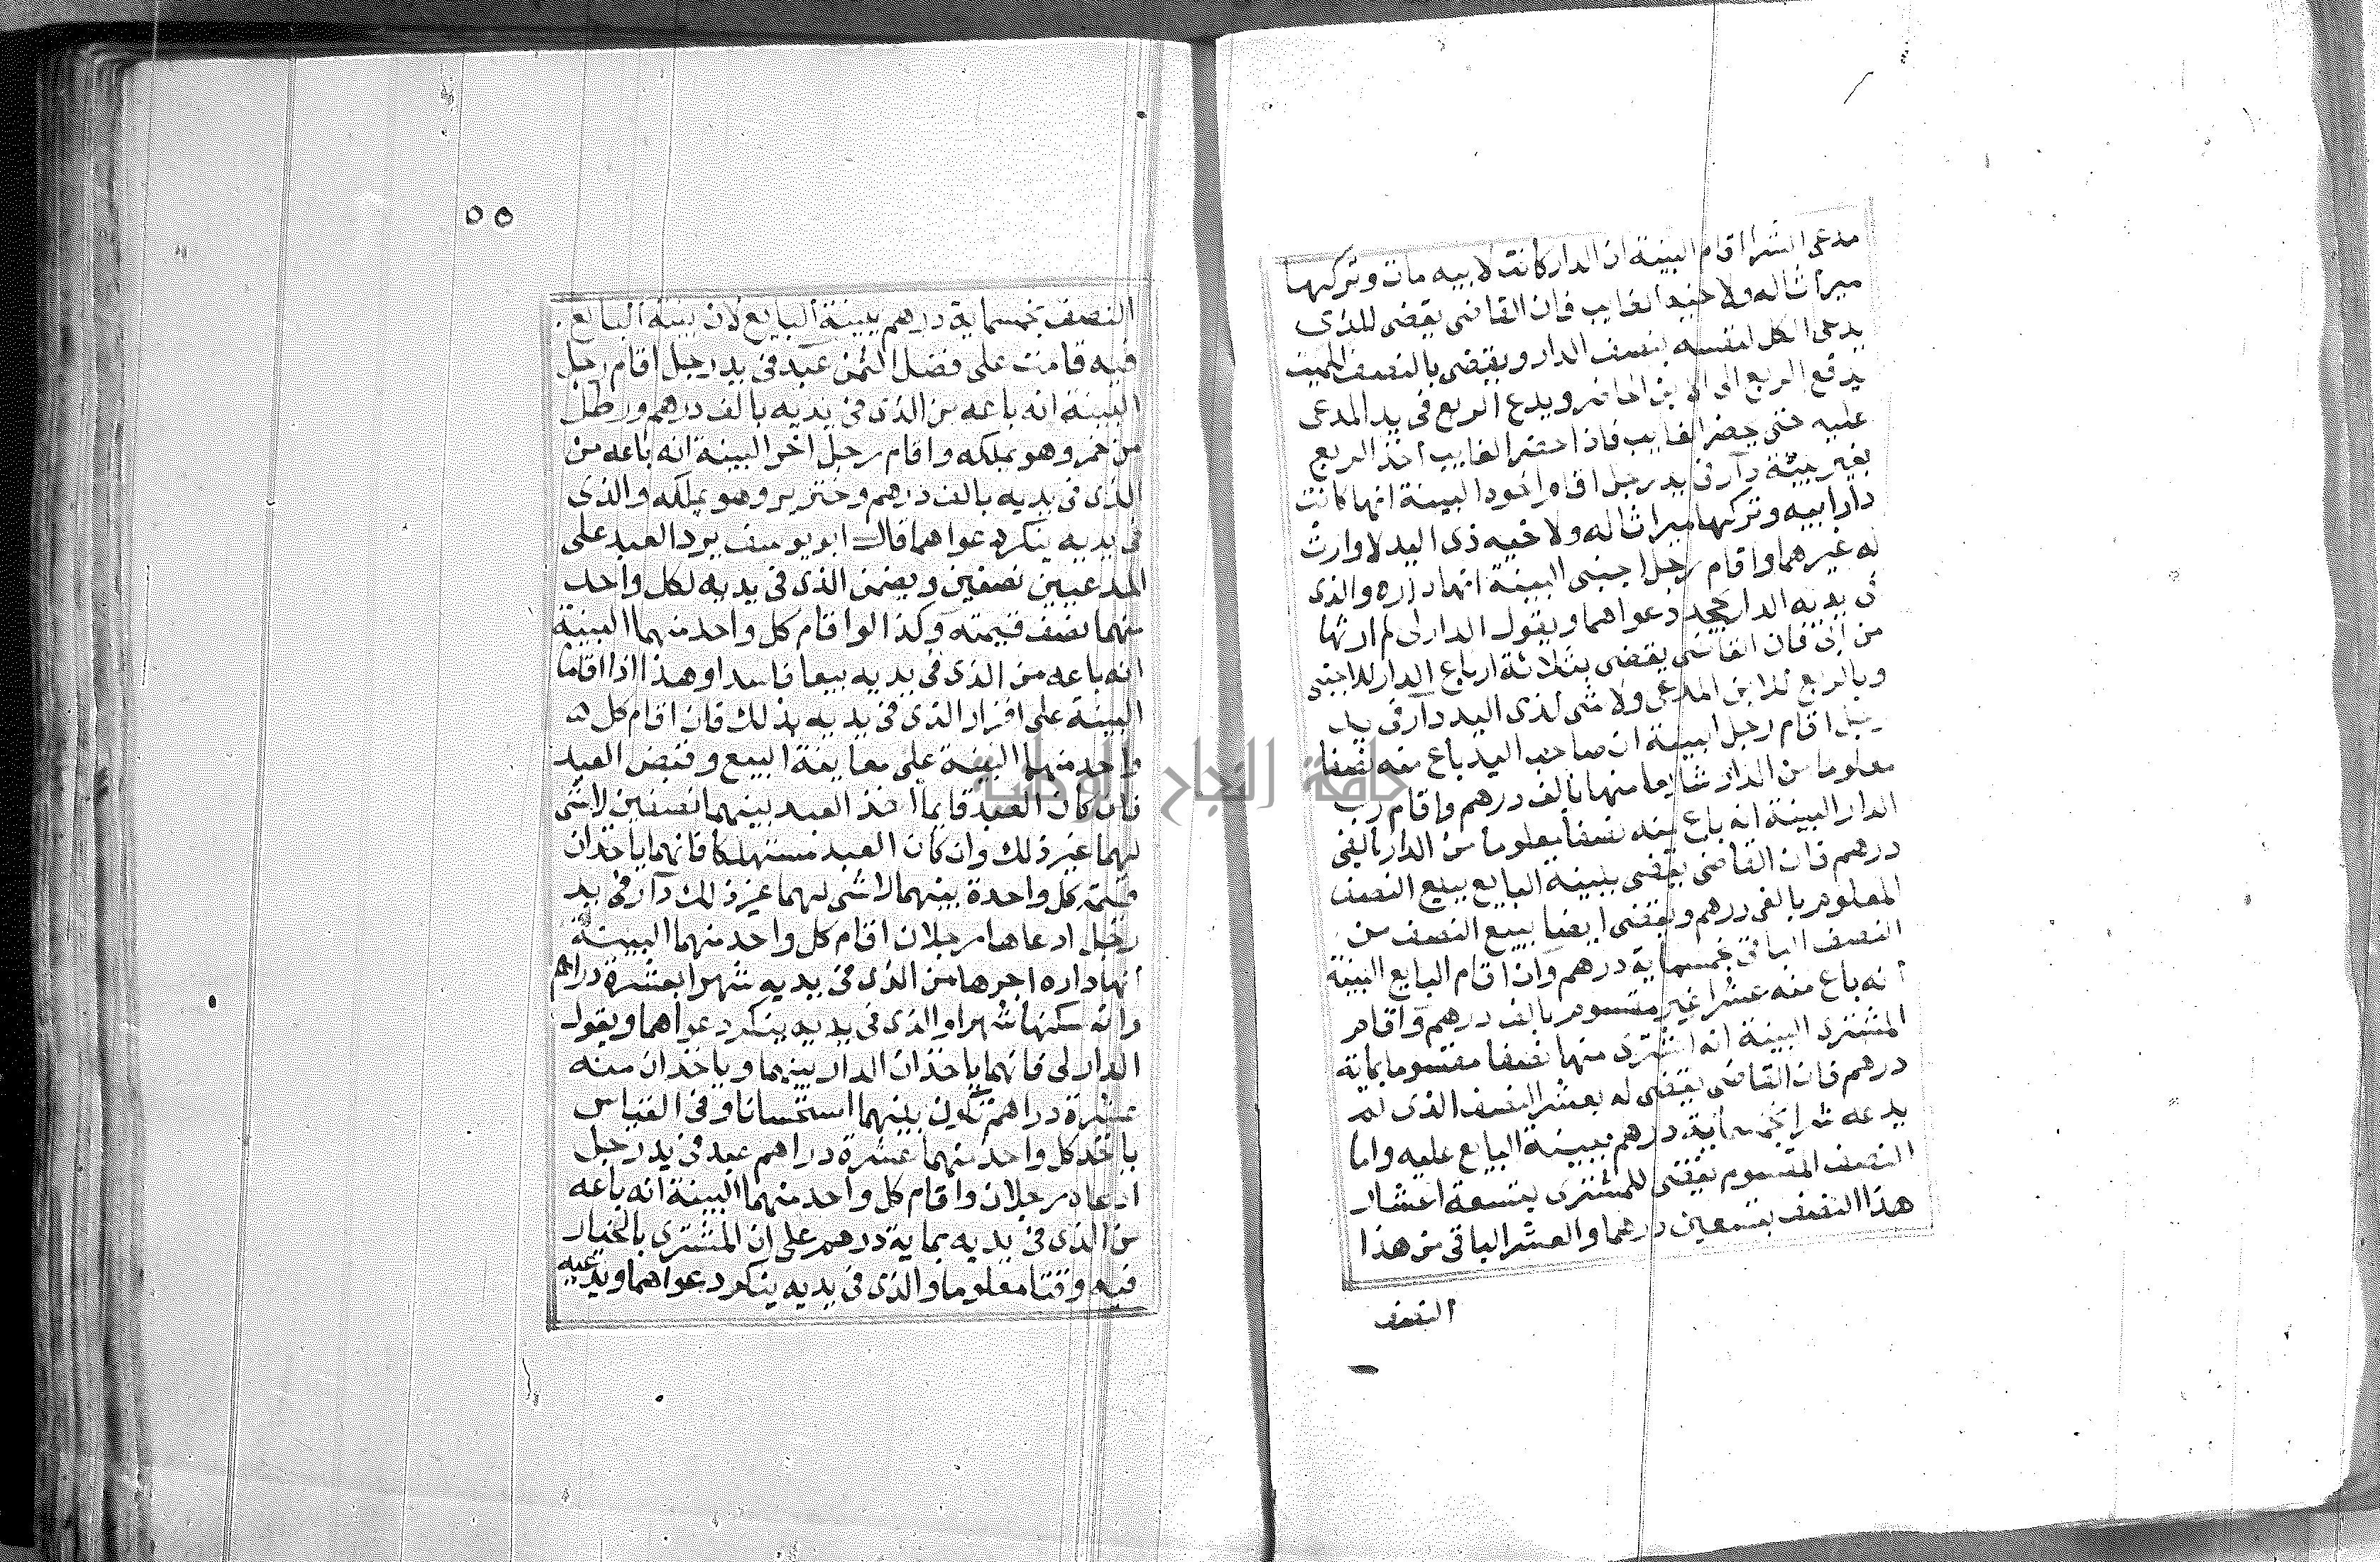 مدعى الشرا اقام البينة ان الدار كانت لابيه مات وتركها
ميراثا له ولاخيه الغايب فان القاضى يقضى للذى
يدعى الكل لنفسه بنصف الدار ويقضى بالنصف للميت
يدفع الربع الى الابن الحاضر ويدع الربع فى يد المدعى
عليه حتى يحضر الغايب فاذا احضر الغايب اخذ الربع
بغير بينة دار فى يد رجل اقام اخوه البينة انها كانت
دار ابيه وتركها ميراثا له ولاخيه ذى اليد لا وارث
له غيرهما واقام رجل اجنبى البينة انها داره والذى
فى يديه الدار يجحد دعواهما ويقول الدار لى لم ارثها
من ابى فان القاضى يقضى بثلاثة ارباع الدار للاجنبى
وبالربع للابن المدعى ولا شى لذى اليد دار فى يد
رجل اقام رجل البينة ان صاحب اليد باع منه نصفا
معلوما من الدار شايعا منها بالف درهم واقام رب
الدار البينة انه باع منه نصفا معلوما من الدار بالفى
درهم فان القاضى يقضى ببينة البايع ببيع النصف
المعلوم بالفى درهم ويقضى ايضا ببيع النصف من
النصف الباقى بخمسماية درهم وان اقام البايع البينة
انه باع منه عشرا غير مقسوم بالف درهم واقام
المشترى البينة انه اشترى منها نصفا مقسوما بماية
درهم فان القاضى يقضى له بعشر النصف الذى لم
يدعه شرا بخمسماية درهم ببينة البايع عليه واما
النصف المقسوم يقضى للمشترى بتسعة اعشار
هذا النصف بتسعين درهما والعشر الباقى من هذا
النصف
٥٥
النصف بخمسماية درهم ببينة البايع لان بينة البايع
فيه قامت على فضل الثمن عبد فى يد رجل اقام رجل
البينة انه باعه من الذى فى يديه بالف درهم ورطل
من خمر وهو يملكه واقام رجل اخر البينة انه باعه من
الذى فى يديه بالف درهم وخنزير وهو يملكه والذى
فى يديه ينكر دعواهما قال ابو يوسف يرد العبد على
المدعيين نصفين ويضمن الذى فى يديه لكل واحد
منهما نصف قيمته وكذا لو اقام كل واحد منهما البينة
انه باعه من الذى فى يديه بيعا فاسدا وهذا اذا اقاما
البينة على اقرار الذى فى يديه بذلك فان اقام كل
واحد منهما البينة على معاينة البيع وقبض العبد
فان كان العبد قايما اخذ العبد بينهما نصفين لا شى
لهما غير ذلك وان كان العبد مستهلكا فانهما ياخذان
قيمة كل واحدة بينهما لا شى لهما غير ذلك دار فى يد
رجل ادعاها رجلان اقام كل واحد منهما البينة
انها داره اجرها من الذى فى يديه شهرا بعشرة دراهم
وانه سكنها شهرا والذى فى يديه ينكر دعواهما ويقول
الدار لى فانهما ياخذان الدار بينهما وياخذان منه
عشرة دراهم تكون بينهما استحسانا وفى القياس
ياخذ كل واحد منهما عشرة دراهم عبد فى يد رجل
ادعاه رجلان واقام كل واحد منهما البينة انه باعه
من الذى فى يديه بماية درهم على ان المشترى بالخيار
فيه وقتا معلوما والذى فى يديه ينكر دعواهما ويدعيه